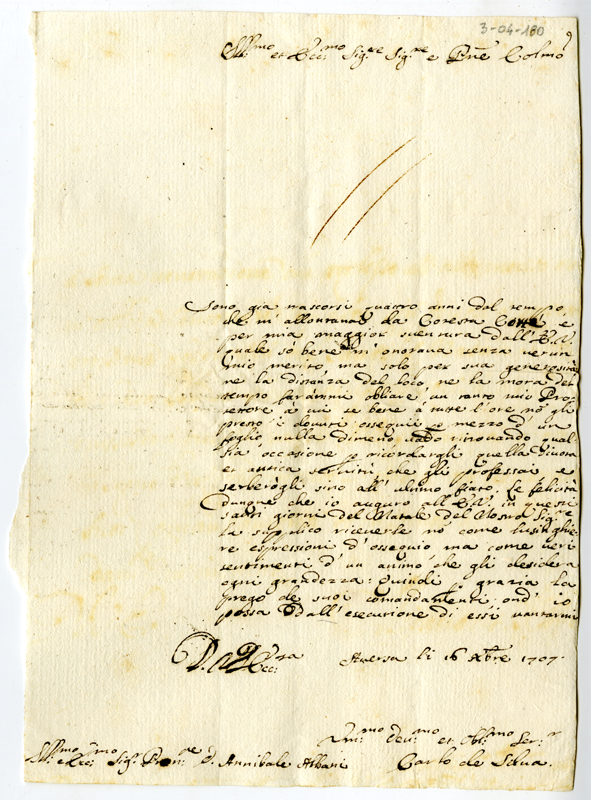 3-04-180
Ill:mo et Ecc:mo Sig:re Sig:re e Pne Colmo
Sono già trascorsi quattro anni dal tempo,
che m'allontanai da Cotesta Corte e
per mia maggior sventura dall'E.V.
quale só bene m'onorava senza verun
mio merito, ma solo per sua generosità
ne la distanza del loco, ne la mora del
tempo farammi obliare un tanto mio Pro-
tettore á cui se bene á tutte l'ore nó gli
presto i dovuti ossequii p mezzo d'un
foglio, nulla dimeno vado rinovando qual-
sia occasione p ricordargli quella divota
et antica servitù che gli professai e
serberògli sino all'ultimo fiato. Le felicità
dunque che io auguro all'E.V. in questi
santi giorni del Natale del Nostro Sig:re
la supplico riceverle nó come lusinghie-
re espressioni d'ossequio ma come veri
sentimenti d'un animo che gli desidera
ogni grandezza: Quindi p grazia la
prego de suoi comandamenti ond'io
possa dall'esecuzione di essi vantarmi
D. V. Ecc:za Aversa li 16 Xbre 1707.
Um:mo Dev:mo et Obl:mo Ser:r
Ill:mo e Ecc:mo Sig:r Pron:e D. Annibale Albani Carlo de Silva.